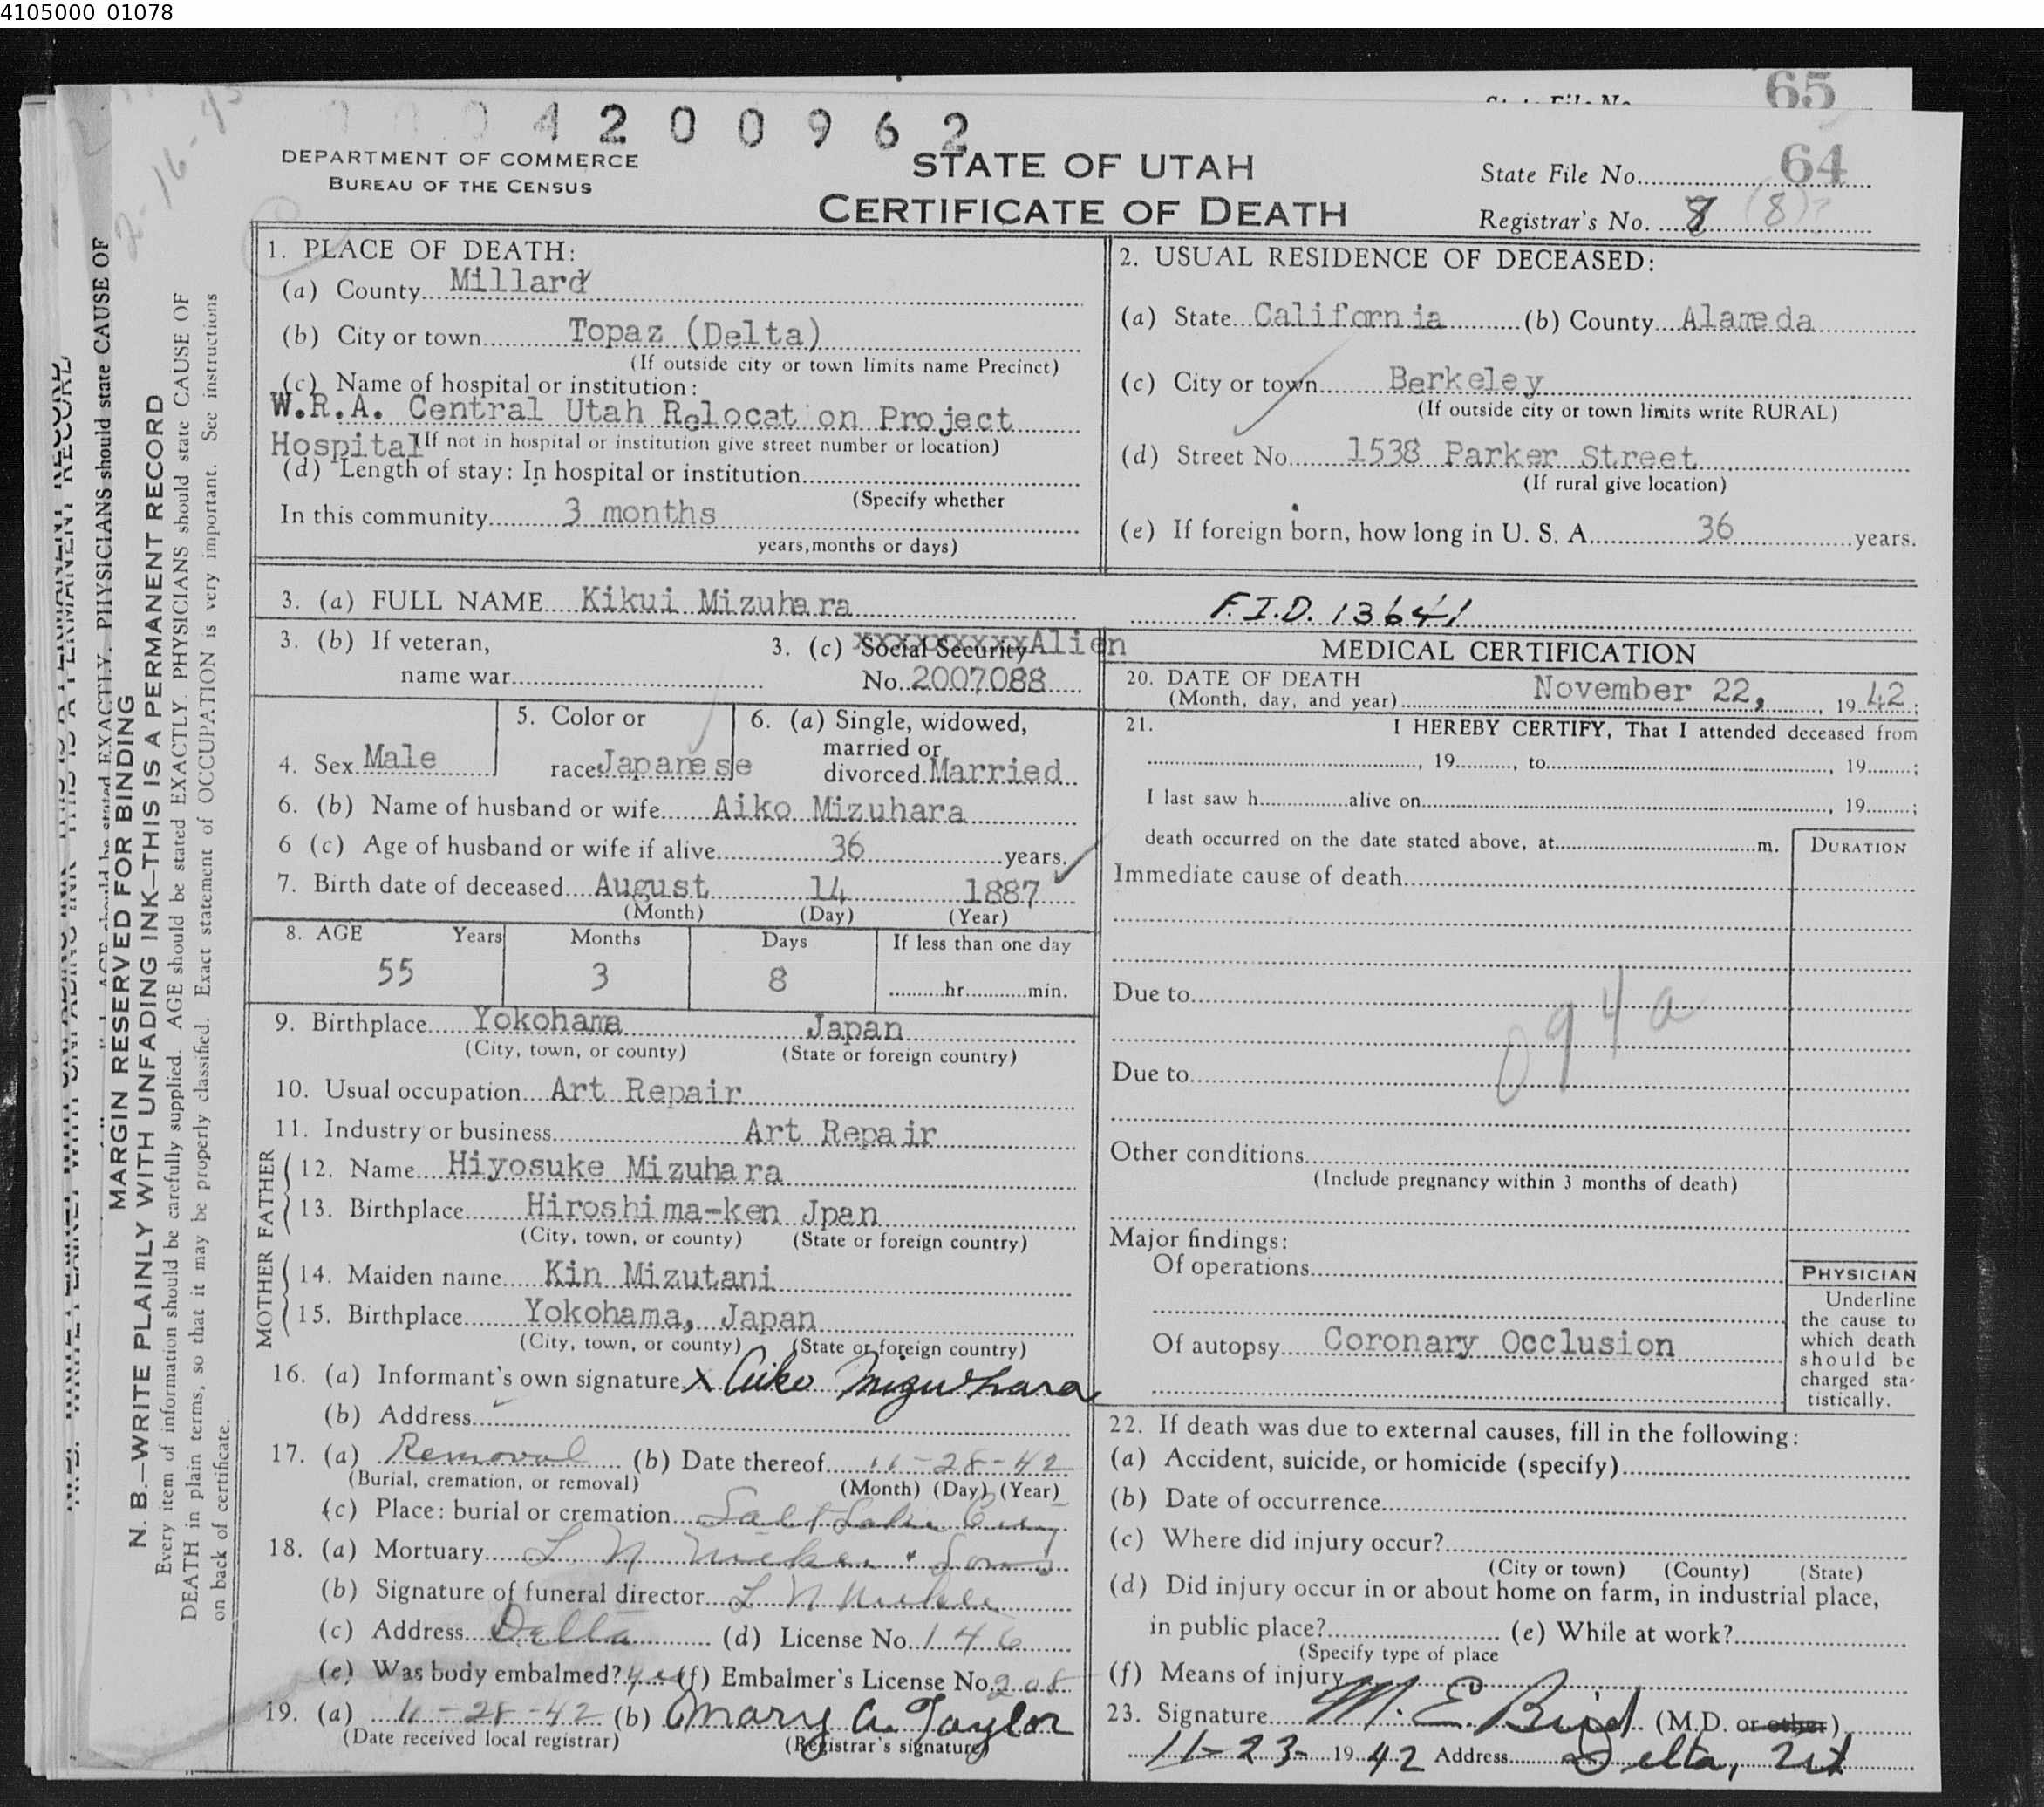 4105000_01078
State File No. 65
4 2 0 0 9 6 2
DEPARTMENT OF COMMERCE
BUREAU OF THE CENSUS
STATE OF UTAH
CERTIFICATE OF DEATH
State File No. 64
Registrar's No. 8 (8)?
2-16-43
MARGIN RESERVED FOR BINDING
N. B.—WRITE PLAINLY WITH UNFADING INK—THIS IS A PERMANENT RECORD
Every item of information should be carefully supplied. AGE should be stated EXACTLY. PHYSICIANS should state CAUSE OF
DEATH in plain terms, so that it may be properly classified. Exact statement of OCCUPATION is very important. See instructions
on back of certificate.
1. PLACE OF DEATH:
(a) County Millard
(b) City or town Topaz (Delta)
(If outside city or town limits name Precinct)
(c) Name of hospital or institution:
W.R.A. Central Utah Relocation Project
Hospital (If not in hospital or institution give street number or location)
(d) Length of stay: In hospital or institution
(Specify whether
In this community 3 months
years, months or days)
2. USUAL RESIDENCE OF DECEASED:
(a) State California (b) County Alameda
(c) City or town Berkeley
(If outside city or town limits write RURAL)
(d) Street No. 1538 Parker Street
(If rural give location)
(e) If foreign born, how long in U. S. A. 36 years.
3. (a) FULL NAME Kikui Mizuhara F.I.D. 13641
3. (b) If veteran,
name war
3. (c) Social Security Alien
No. 2007088
4. Sex Male
5. Color or
race Japanese
6. (a) Single, widowed,
married or
divorced Married
6. (b) Name of husband or wife Aiko Mizuhara
6 (c) Age of husband or wife if alive 36 years.
7. Birth date of deceased August 14 1887
(Month) (Day) (Year)
8. AGE Years Months Days If less than one day
55 3 8 hr. min.
9. Birthplace Yokohama Japan
(City, town, or county) (State or foreign country)
10. Usual occupation Art Repair
11. Industry or business Art Repair
FATHER
12. Name Hiyosuke Mizuhara
13. Birthplace Hiroshima-ken Jpan
(City, town, or county) (State or foreign country)
MOTHER
14. Maiden name Kin Mizutani
15. Birthplace Yokohama, Japan
(City, town, or county) (State or foreign country)
16. (a) Informant's own signature X Aiko Mizuhara
(b) Address
17. (a) Removal (b) Date thereof 11-28-42
(Burial, cremation, or removal) (Month) (Day) (Year)
(c) Place: burial or cremation Salt Lake City
18. (a) Mortuary L N Nickle & Sons
(b) Signature of funeral director L N Nickle
(c) Address Delta (d) License No. 146
(e) Was body embalmed? Yes (f) Embalmer's License No. 208
19. (a) 11-28-42 (b) Mary A. Taylor
(Date received local registrar) (Registrar's signature)
MEDICAL CERTIFICATION
20. DATE OF DEATH
(Month, day, and year) November 22, , 19 42;
21. I HEREBY CERTIFY, That I attended deceased from
, 19 , to , 19 ;
I last saw h alive on , 19 ;
death occurred on the date stated above, at m.
DURATION
Immediate cause of death
Due to
094a
Due to
Other conditions
(Include pregnancy within 3 months of death)
Major findings:
Of operations
Of autopsy Coronary Occlusion
PHYSICIAN
Underline
the cause to
which death
should be
charged sta-
tistically.
22. If death was due to external causes, fill in the following:
(a) Accident, suicide, or homicide (specify)
(b) Date of occurrence
(c) Where did injury occur?
(City or town) (County) (State)
(d) Did injury occur in or about home on farm, in industrial place,
in public place? (e) While at work?
(Specify type of place
(f) Means of injury
23. Signature M. E. Bird (M.D. or other)
11-23- 19 42 Address Delta, Ut